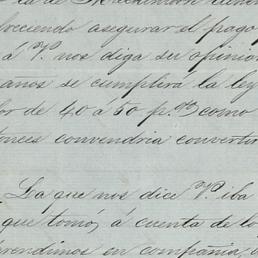 ofreciendo asegurar el pago
á V. nos diga su opinion
años se cumplirá la ley
lor de 40 á 50 p.% como
tonces convendria convertir
La que nos dice V. iba
que tomó, á cuenta de lo
prendimos en compañia,